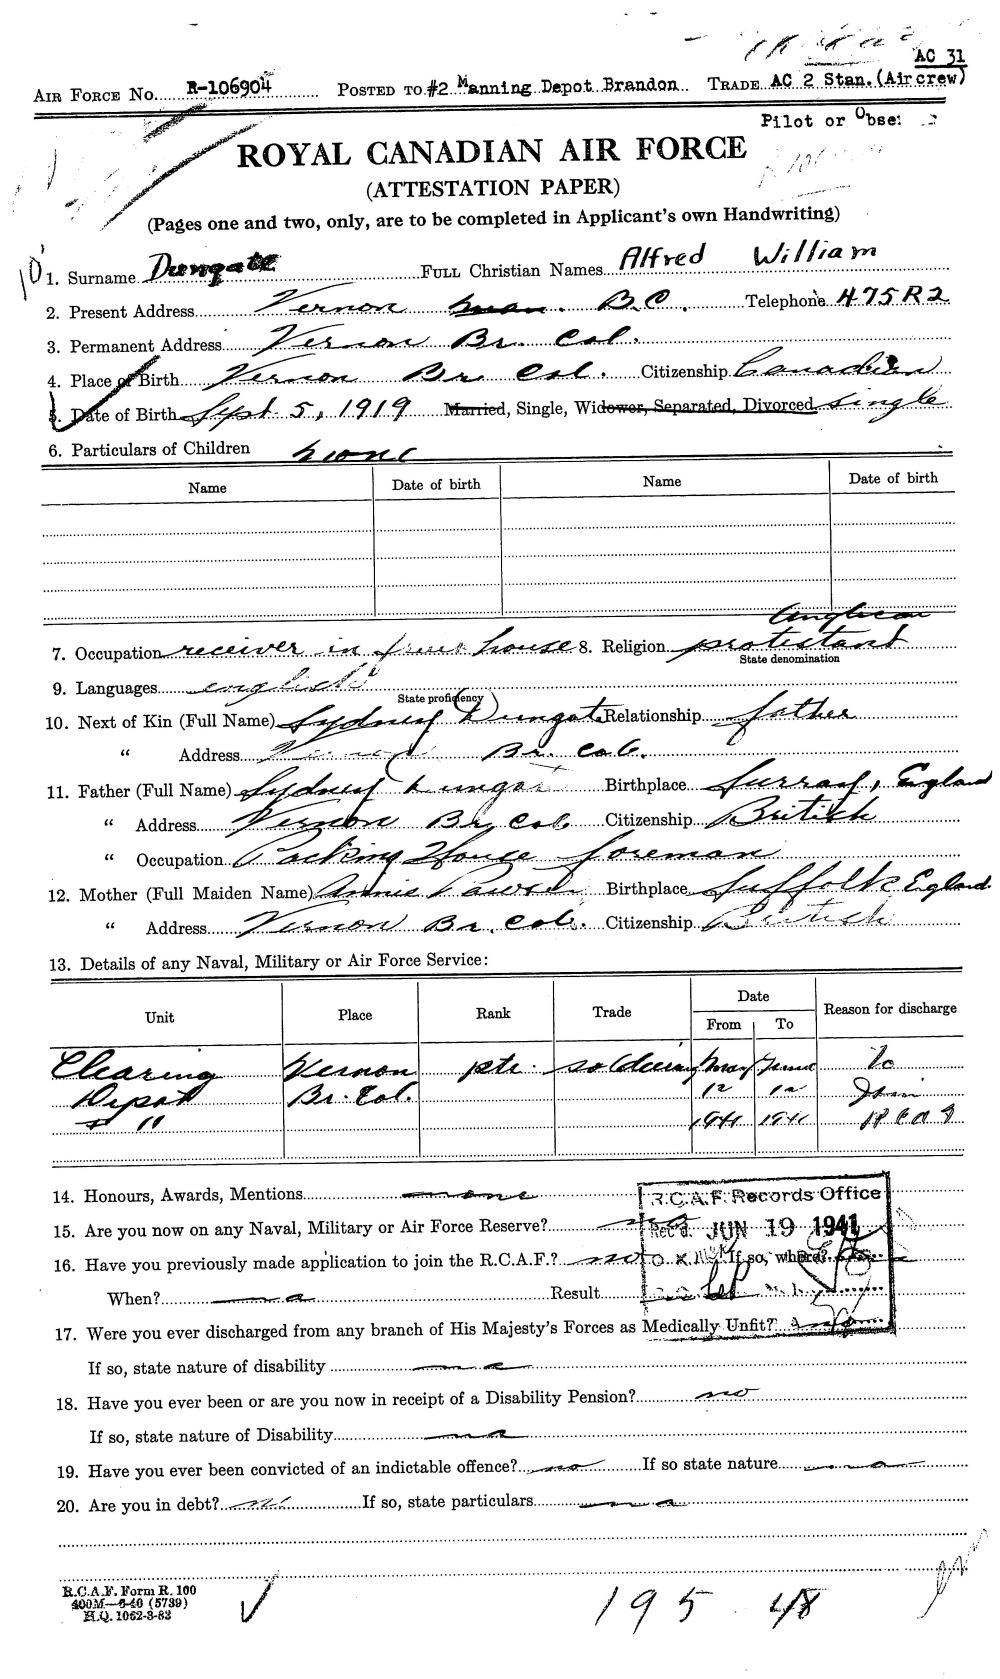 AC 31
AIR FORCE No. R-106904 POSTED TO #2 Manning Depot Brandon TRADE AC 2 Stan. (Aircrew)
Pilot or Obse
ROYAL CANADIAN AIR FORCE
(ATTESTATION PAPER)
(Pages one and two, only, are to be completed in Applicant's own Handwriting)
1. Surname Dungate FULL Christian Names Alfred William
2. Present Address Vernon B.C. Telephone 475R2
3. Permanent Address Vernon Br. Col.
4. Place of Birth Vernon Br. Col. Citizenship Canadian
5. Date of Birth Sept 5, 1919 Married, Single, Widower, Separated, Divorced single
6. Particulars of Children none
Name Date of birth Name Date of birth
Anglican
7. Occupation receiver in fruit house 8. Religion protestant
State denomination
9. Languages english
State proficiency
10. Next of Kin (Full Name) Sydney Dungate Relationship father
" Address Vernon Br. Col.
11. Father (Full Name) Sydney Dungate Birthplace Surray, England
" Address Vernon Br. Col. Citizenship British
" Occupation Packing House foreman
12. Mother (Full Maiden Name) Annie Birthplace Suffolk England
" Address Vernon Br. Col. Citizenship British
13. Details of any Naval, Military or Air Force Service:
Unit Place Rank Trade Date Reason for discharge
From To
Clearing Vernon pte. soldiering May June To
Depot Br. Col. 12 12 Join
" 1941 1941 RCAF
14. Honours, Awards, Mentions none
R.C.A.F. Records Office
15. Are you now on any Naval, Military or Air Force Reserve? no
Rec'd. JUN 19 1941
16. Have you previously made application to join the R.C.A.F.? no If so, where?
When? na Result
17. Were you ever discharged from any branch of His Majesty's Forces as Medically Unfit? no
If so, state nature of disability na
18. Have you ever been or are you now in receipt of a Disability Pension? no
If so, state nature of Disability na
19. Have you ever been convicted of an indictable offence? no If so state nature na
20. Are you in debt? no If so, state particulars na
R.C.A.F. Form R. 100
400M—6-40 (5739)
H.Q. 1062-3-83
195 48